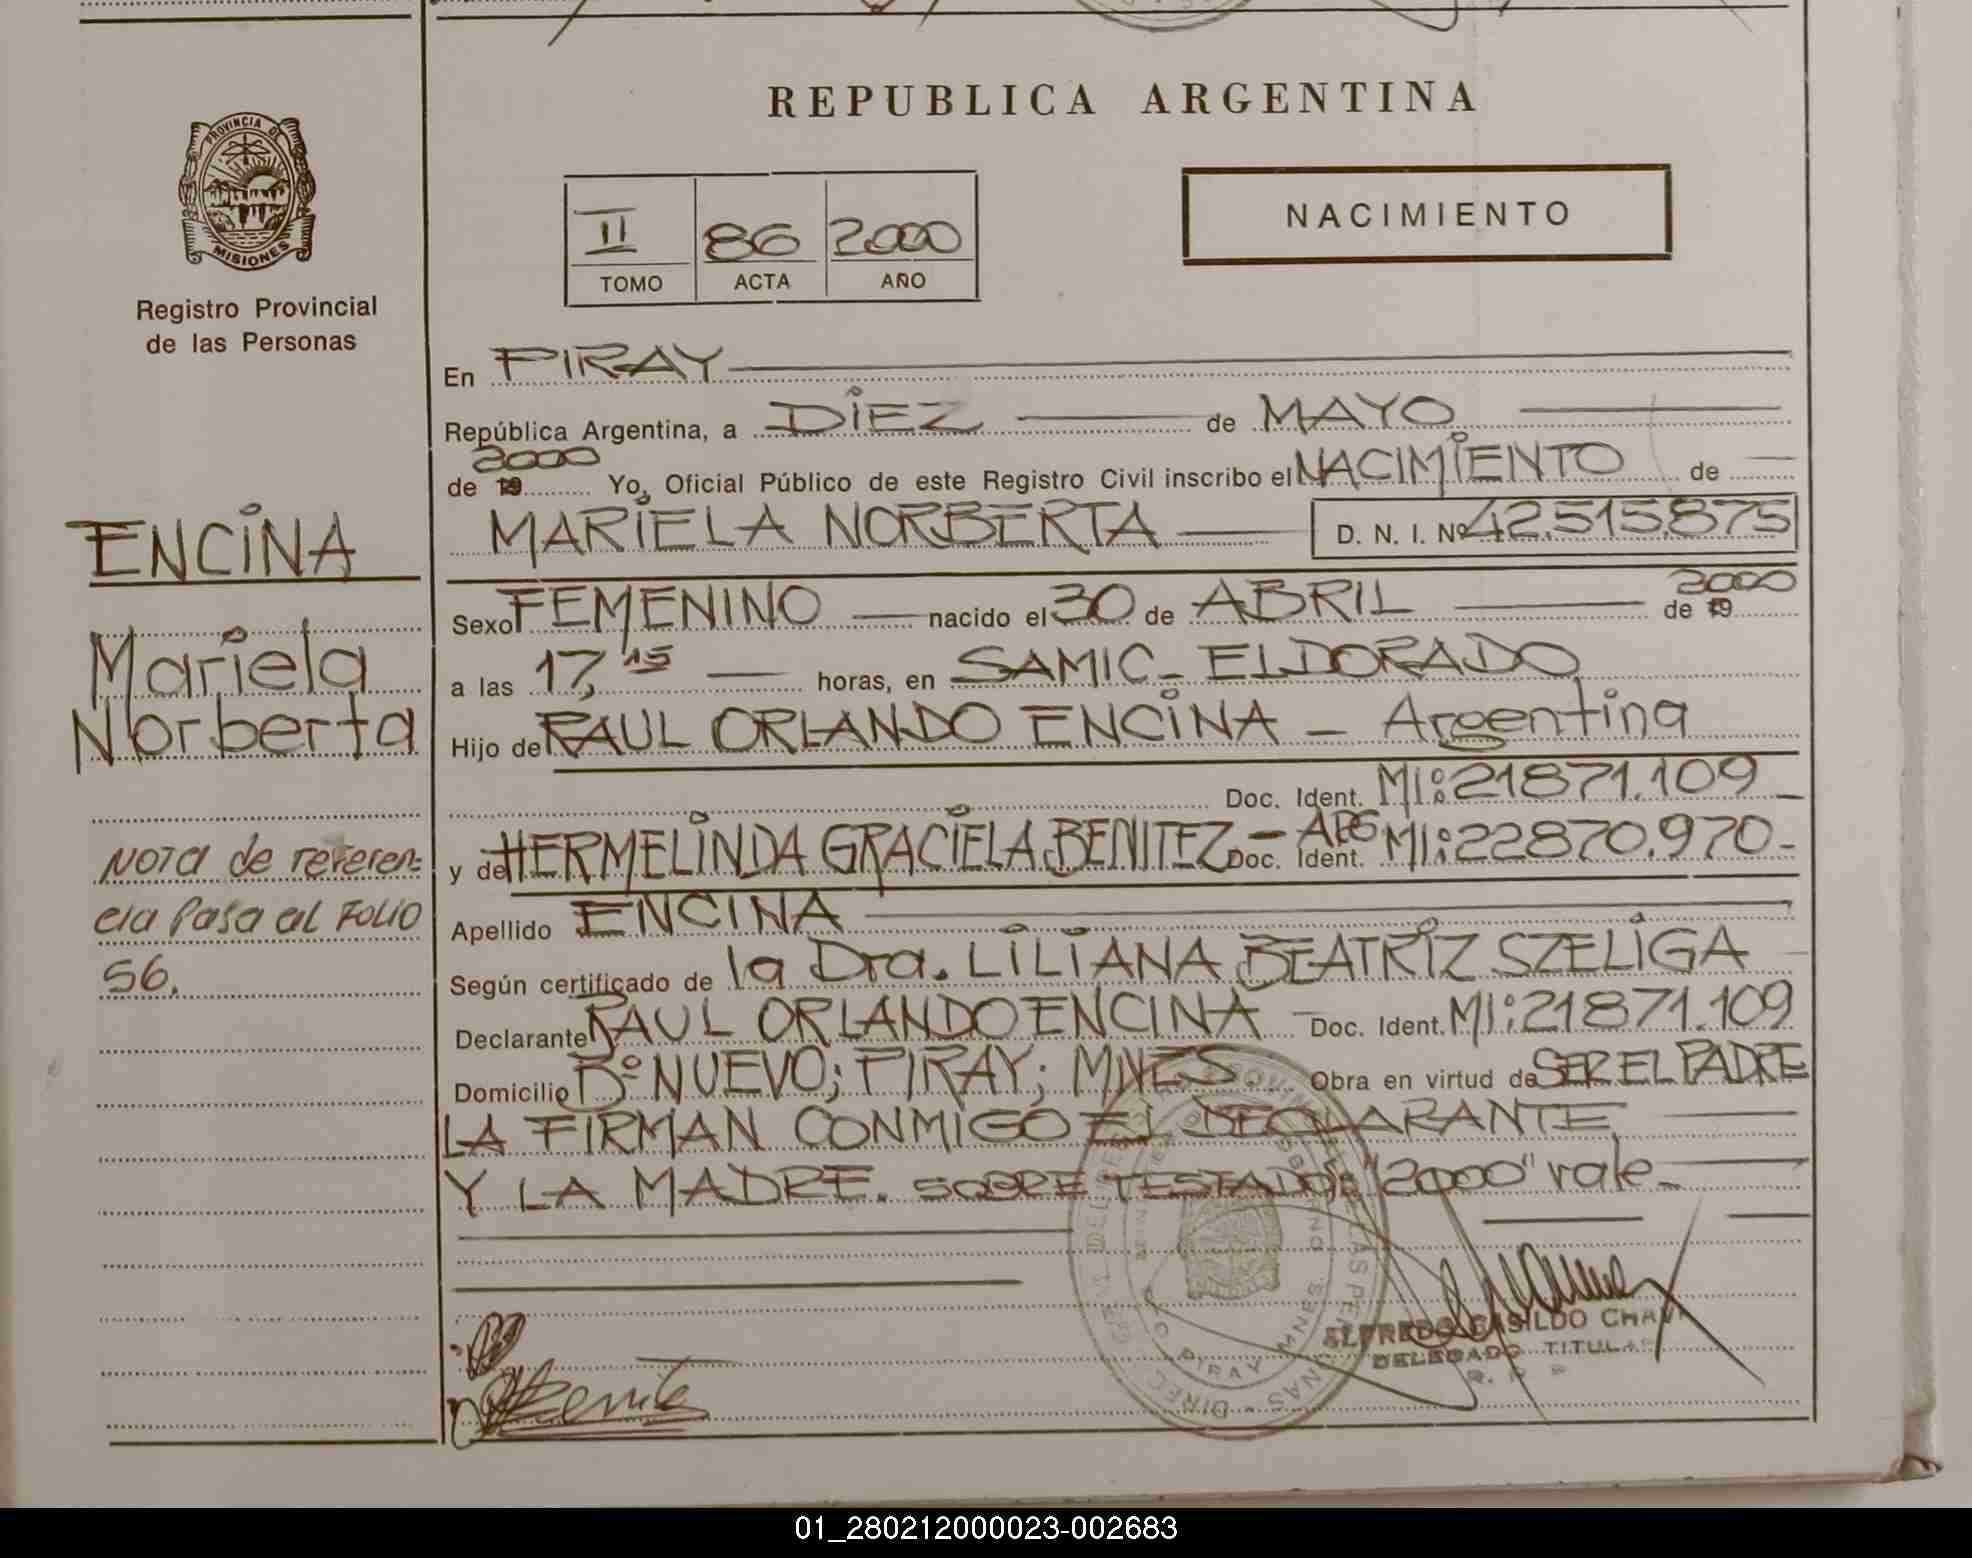 REPUBLICA ARGENTINA
PROVINCIA DE
MISIONES
Registro Provincial
de las Personas
II 86 2000
TOMO ACTA AÑO
NACIMIENTO
En PIRAY
República Argentina, a DIEZ de MAYO
2000
de 19 Yo, Oficial Público de este Registro Civil inscribo el NACIMIENTO de
MARIELA NORBERTA D. N. I. Nº 42.515.875
Sexo FEMENINO nacido el 30 de ABRIL de 19 2000
a las 17,15 horas, en SAMIC - ELDORADO
Hijo de RAUL ORLANDO ENCINA - Argentina
Doc. Ident. MI: 21871.109
y de HERMELINDA GRACIELA BENITEZ - ARG Doc. Ident. MI: 22870.970-
Apellido ENCINA
Según certificado de la Dra. LILIANA BEATRIZ SZELIGA
Declarante RAUL ORLANDO ENCINA Doc. Ident. MI: 21871.109
Domicilio Bº NUEVO; PIRAY; MNES Obra en virtud de SER EL PADRE
LA FIRMAN CONMIGO EL DECLARANTE
Y LA MADRE. SOBRE TESTADO: "2000" vale-
ENCINA
Mariela
Norberta
NOTA de referen-
cia Pasa al FOLIO
56.
ALFREDO CASILDO
DELEGADO TITULAR
PIRAY
01_280212000023-002683